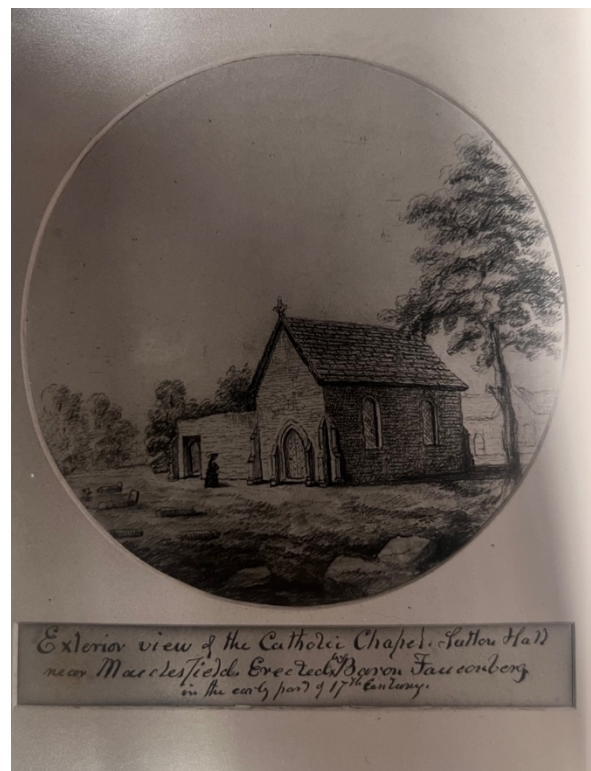 Exterior view of the Catholic Chapel. Sutton Hall
near Macclesfield. Erected by Baron Fauconberg
in the early part of 17th Century.